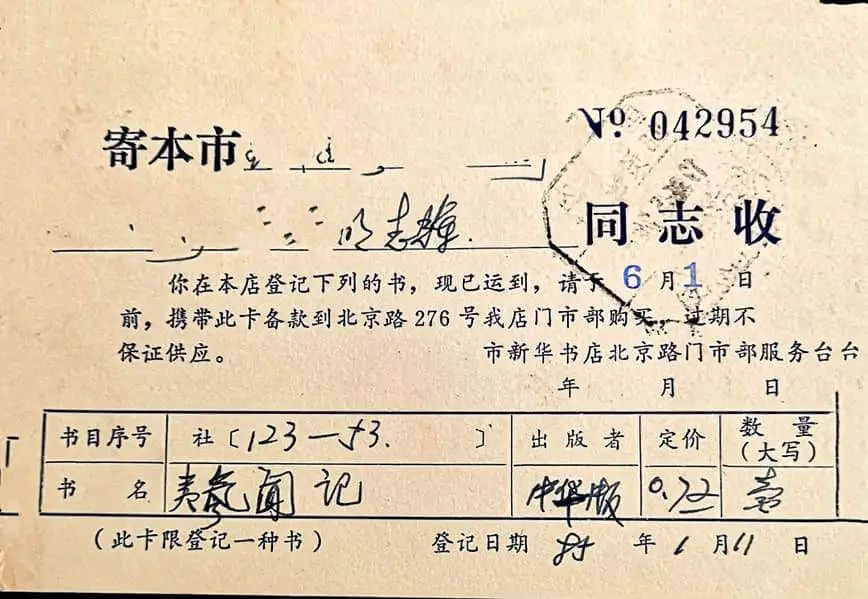 No 042954
寄本市
志 同志收
你在本店登记下列的书，现已运到，请于 6 月 1 日
前，携带此卡备款到北京路276号我店门市部购买，过期不
保证供应。 市新华书店北京路门市部服务台台
年 月 日
书目序号 社〔123—53. 〕 出版者 定价 数量（大写）
书名 夷氛闻记 中华版 0.72 壹
（此卡限登记一种书） 登记日期 85 年 1 月 11 日